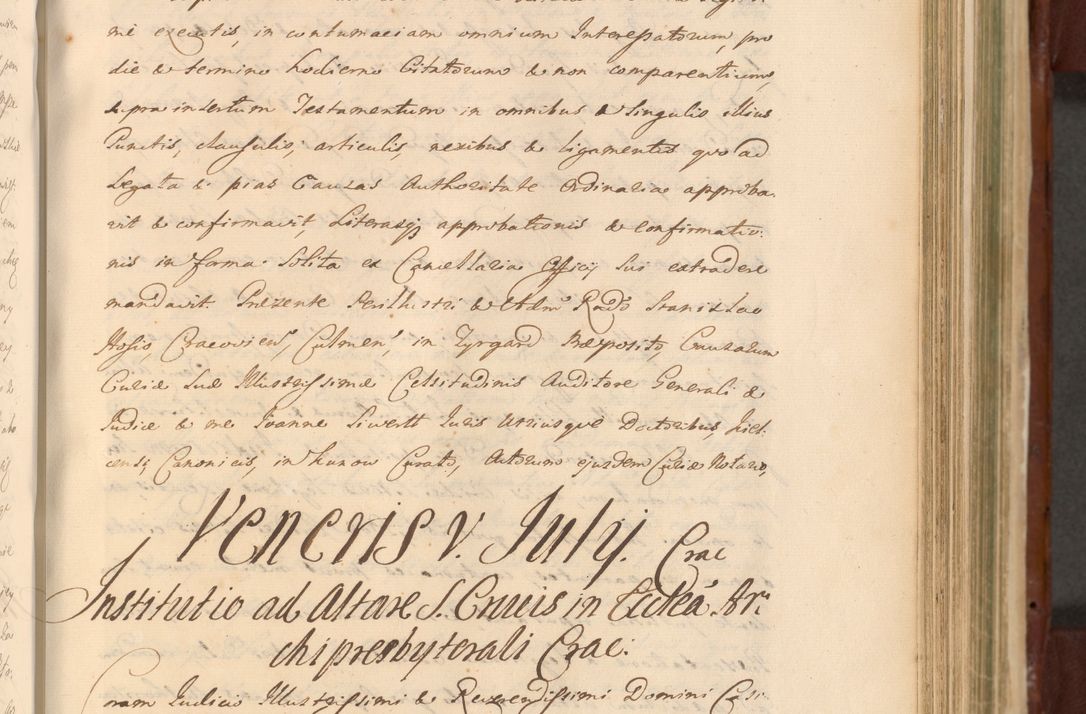 mè executis, in contumaciam omnium Interessatorum, pro
die & termino hodierno Citatorum & non comparentium,
& prae insertum Testamentum in omnibus & Singulis illius
Punctis, clausulis, articulis, nexibus & ligamentis quo ad
Legata & pias Causas Authoritate Ordinaria approba
vit & confirmavit, Literasq; approbationis & Confirmatio:
nis in forma Solita ex Cancellaria Officij Sui extradere
mandavit. Prezente Perillustri & Adm: Rndō Stanislao
Hosio, Cracovien, Culmen, in Zyrgard Praeposito, Causarum
Curiae Suae Illustrissimae Celsitudinis Auditore Generali &
Judice & me Joanne Siwertt Juris Utriusque Doctoribus, Kiel:
censi, Canonicis, in Kunow Curato, Actorum ejusdem Curiae Notario,
Veneris V. Julij. Crac
Institutio ad Altare S. Crucis in Eccleā Ar:
chipresbyterali Crac:
Coram Judicio Illustrissimi & Reverendissimi Domini Casi: